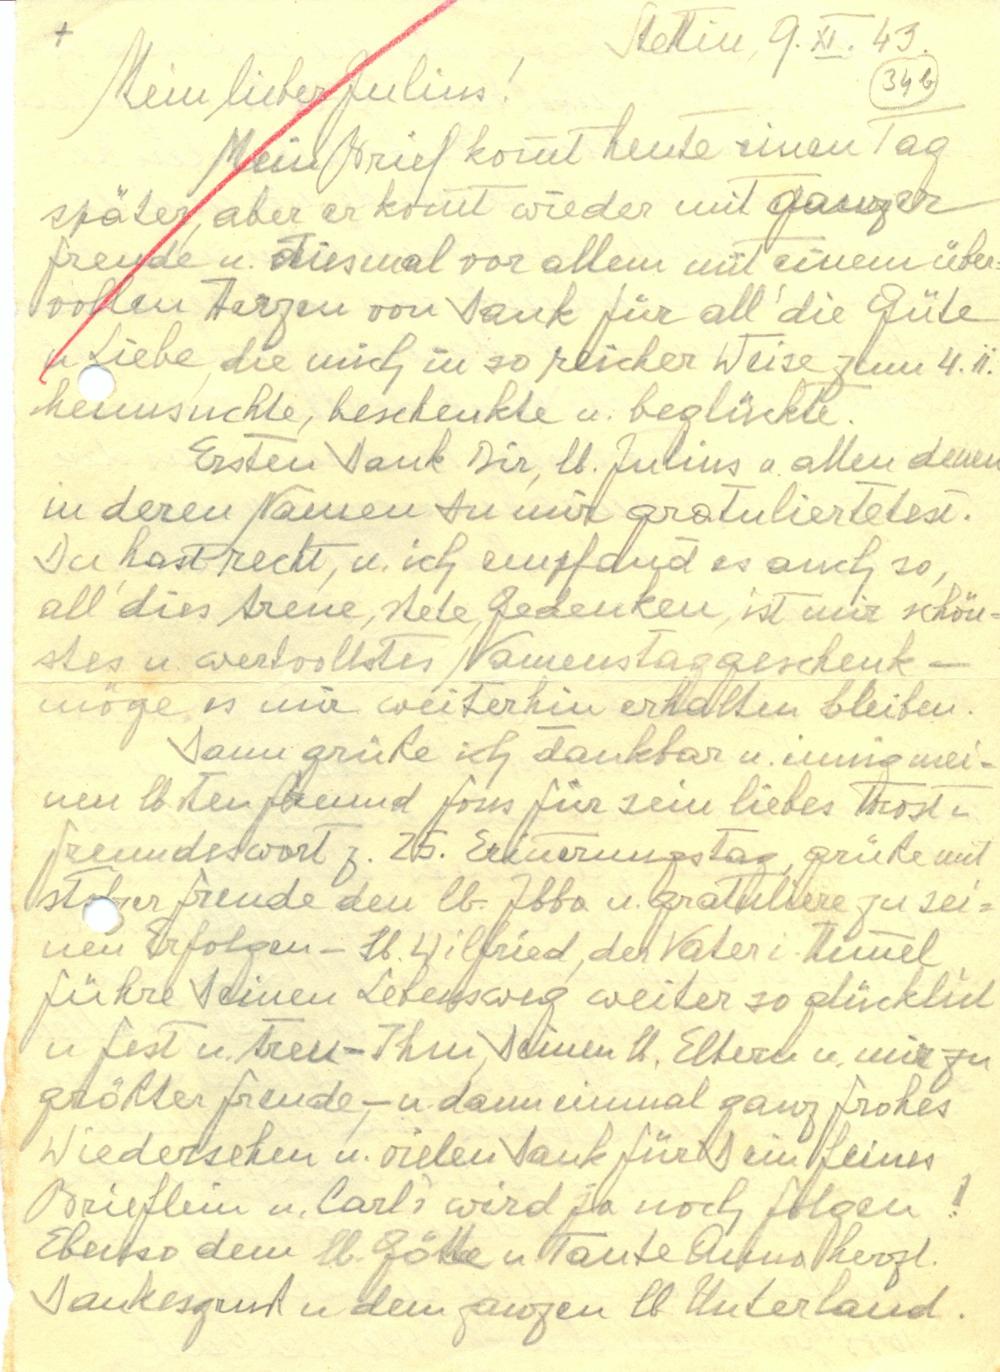 +
Stettin, 9. XI. 43.
34b
Mein lieber Julius!
Mein Brief komt heute einen Tag
später, aber er komt wieder mit ganzer
Freude u. diesmal vor allem mit einem über=
vollen Herzen von Dank für all' die Güte
u Liebe, die mich in so reicher Weise zum 4. II.
heimsuchte, beschenkte u. beglückte.
Ersten Dank Dir, lb. Julius u. allen denen
in deren Namen Du mir gratuliertetest.
Du hast recht, u. ich empfand es auch so,
all' dies treue, stete Gedenken, ist mir schön=
stes u. wertvollstes Namenstaggeschenk –
möge es mir weiterhin erhalten bleiben.
Dann grüße ich dankbar u. innig mei=
nen lbsten Freund für sein liebes Trost=
Freundeswort z. 25. Erinerungstag, grüße mit
stolzer Freude den lb. Ibbo u. gratuliere zu sei=
nen Erfolgen – lb. Wilfried, der Vater i. Himel
führe Deinen Lebensweg weiter so glücklich
u fest u. treu – Ihm, Deinen lb. Eltern u. mir zu
größter Freude, – u. dann einmal ganz frohes
Wiedersehen u. vielen Dank für Dein feines
Brieflein u. Carl's wird ja noch folgen!
Ebenso dem lb. Götte u Tante Anna herzl.
Dankesgruß u dem ganzen lb Unterland.